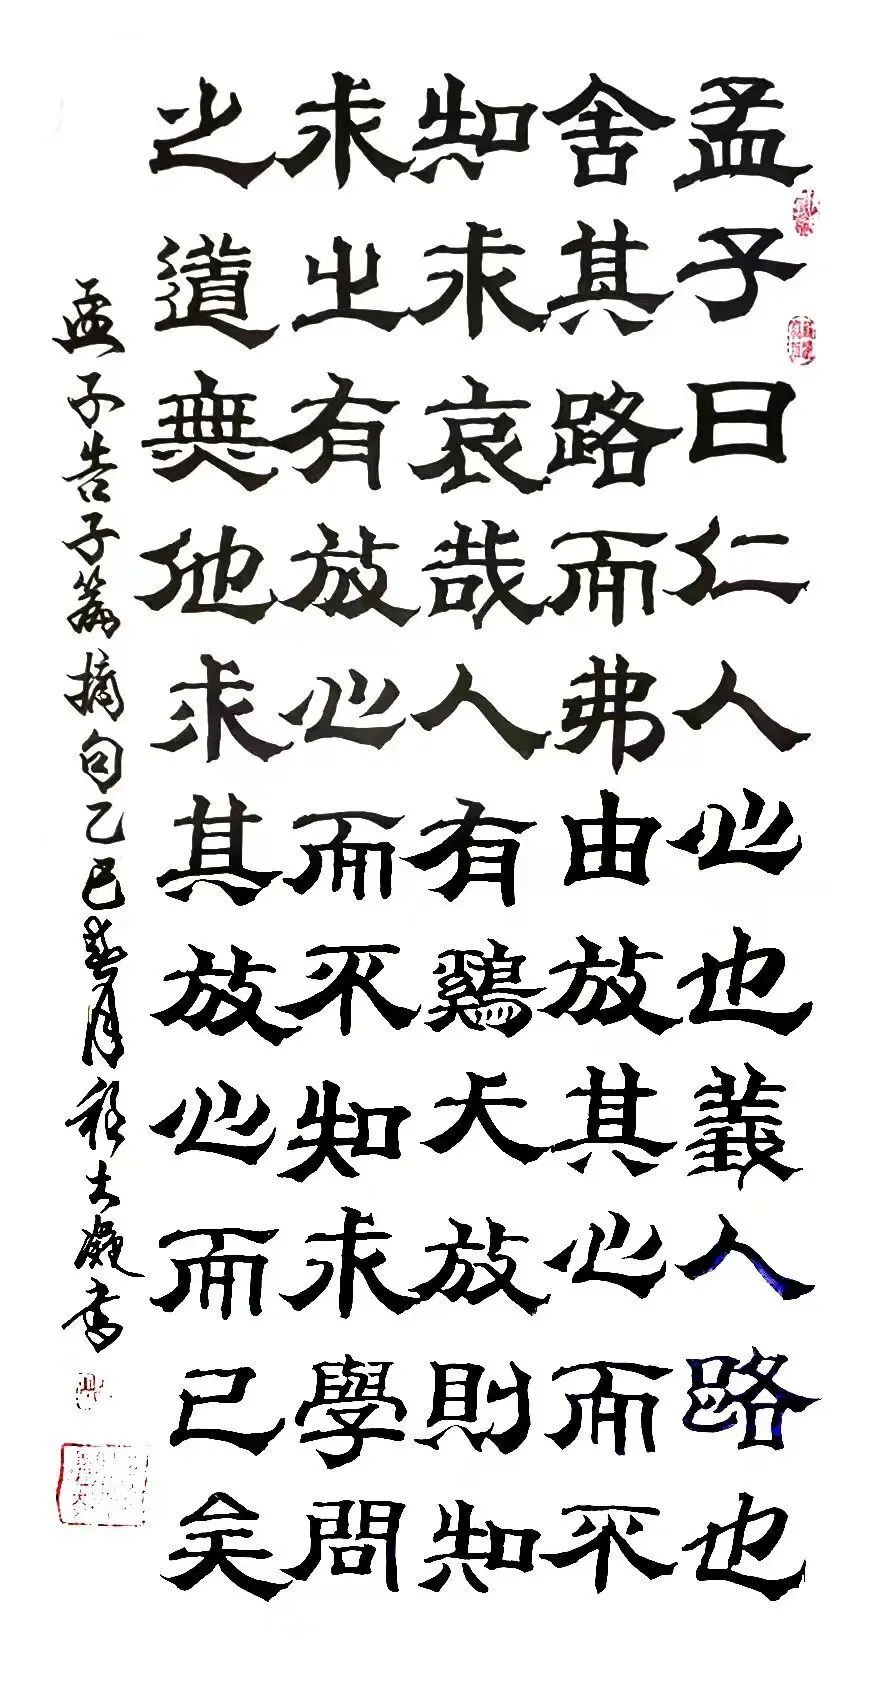 孟子曰仁人心也義人路也
舍其路而弗由放其心而不
知求哀哉人有鷄犬放則知
求之有放心而不知求學問
之道無他求其放心而已矣
孟子告子篇摘句乙巳春月程大書